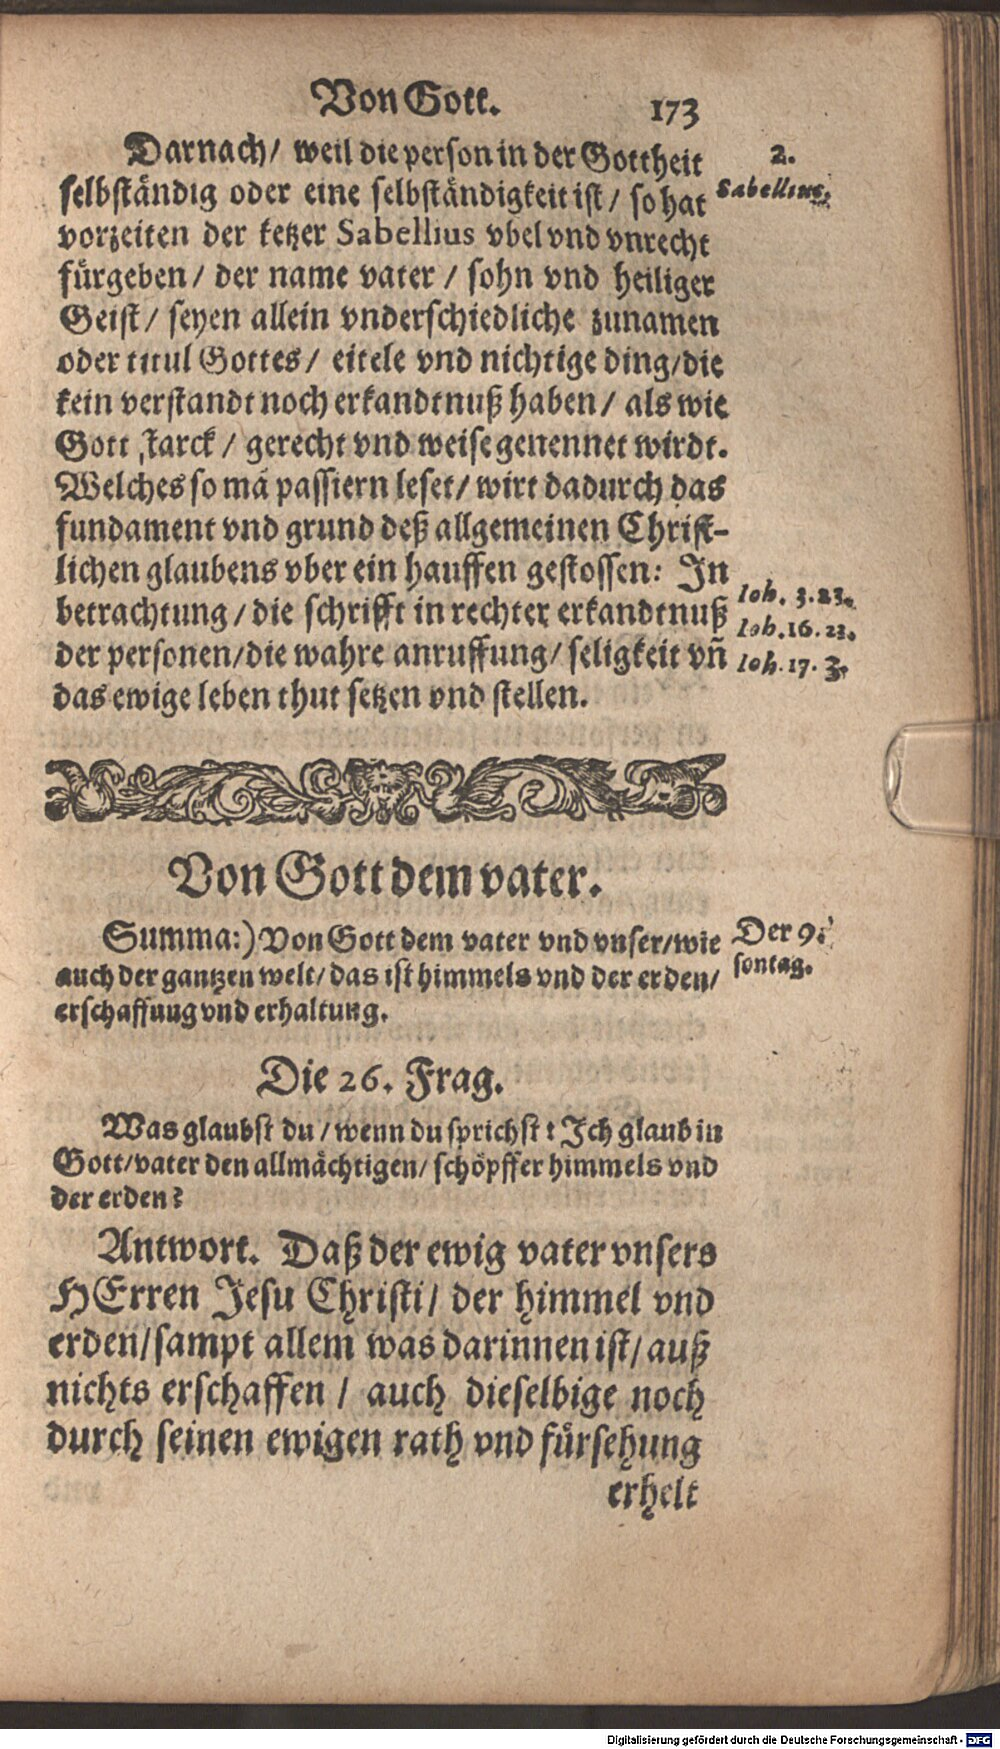 Von Gott. 173
Darnach/ weil die person in der Gottheit
selbständig oder eine selbständigkeit ist/ so hat
vorzeiten der ketzer Sabellius vbel vnd vnrecht
fürgeben/ der name vater/ sohn vnd heiliger
Geist/ seyen allein vnderschiedliche zunamen
oder titul Gottes/ eitele vnd nichtige ding/die
kein verstandt noch erkandtnuß haben/ als wie
Gott starck/ gerecht vnd weise genennet wirdt.
Welches so mā passiern leset/ wirt dadurch das
fundament vnd grund deß allgemeinen Christ-
lichen glaubens vber ein hauffen gestossen: In
betrachtung/ die schrifft in rechter erkandtnuß
der personen/die wahre anruffung/ seligkeit vñ
das ewige leben thut setzen vnd stellen.
2.
Sabellius.
Ioh. 3.23.
Ioh.16.23.
Ioh.17.3.
Von Gott dem vater.
Summa:) Von Gott dem vater vnd vnser/wie
auch der gantzen welt/ das ist himmels vnd der erden/
erschaffung vnd erhaltung.
Der 9.
sontag.
Die 26. Frag.
Was glaubst du/ wenn du sprichst: Ich glaub in
Gott/vater den allmächtigen/ schöpffer himmels vnd
der erden?
Antwort. Daß der ewig vater vnsers
HErren Jesu Christi/ der himmel vnd
erden/sampt allem was darinnen ist/ auß
nichts erschaffen/ auch dieselbige noch
durch seinen ewigen rath vnd fürsehung
erhelt
Digitalisierung gefördert durch die Deutsche Forschungsgemeinschaft - DFG